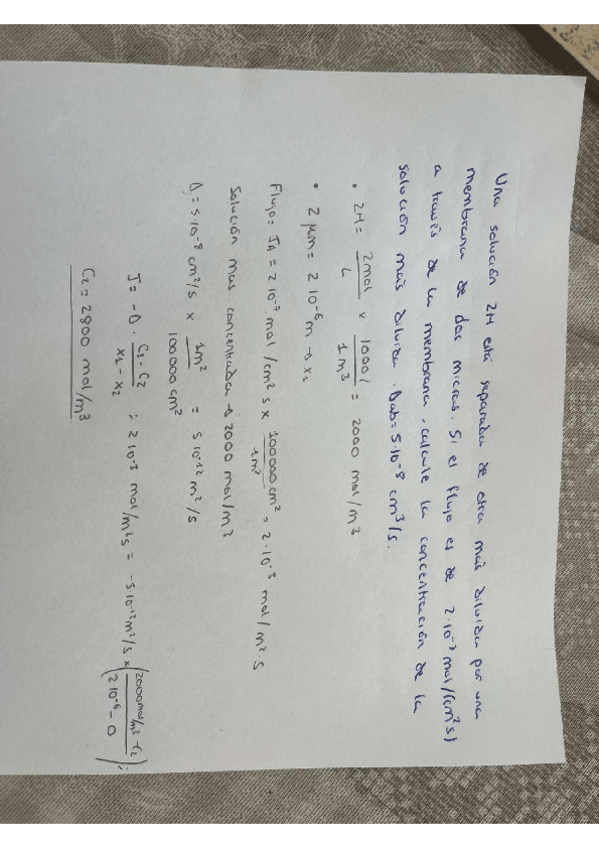 Una solución 2M está separada de otra más diluida por una
membrana de dos micras. Si el flujo es de 2·10⁻⁷ mol/(cm²s)
a través de la membrana, calcule la concentración de la
solución más diluida. Dab = 5·10⁻⁸ cm²/s.
• 2M = 2mol/L × 1000l/1m³ = 2000 mol/m³
• 2 μm = 2 10⁻⁶ m → x₁
Flujo: JA = 2 10⁻⁷ mol/cm² s × 100000 cm²/1m² = 2·10⁻³ mol/m²·s
Solución más concentrada → 2000 mol/m³
D = 5·10⁻⁸ cm²/s × 1m²/100000 cm² = 5 10⁻¹² m²/s
J = -D · C₁-C₂/x₁-x₂ ; 2 10⁻³ mol/m²s = -5·10⁻¹² m²/s × (2000mol/m³-C₂/2 10⁻⁶-0);
C₂ = 2800 mol/m³